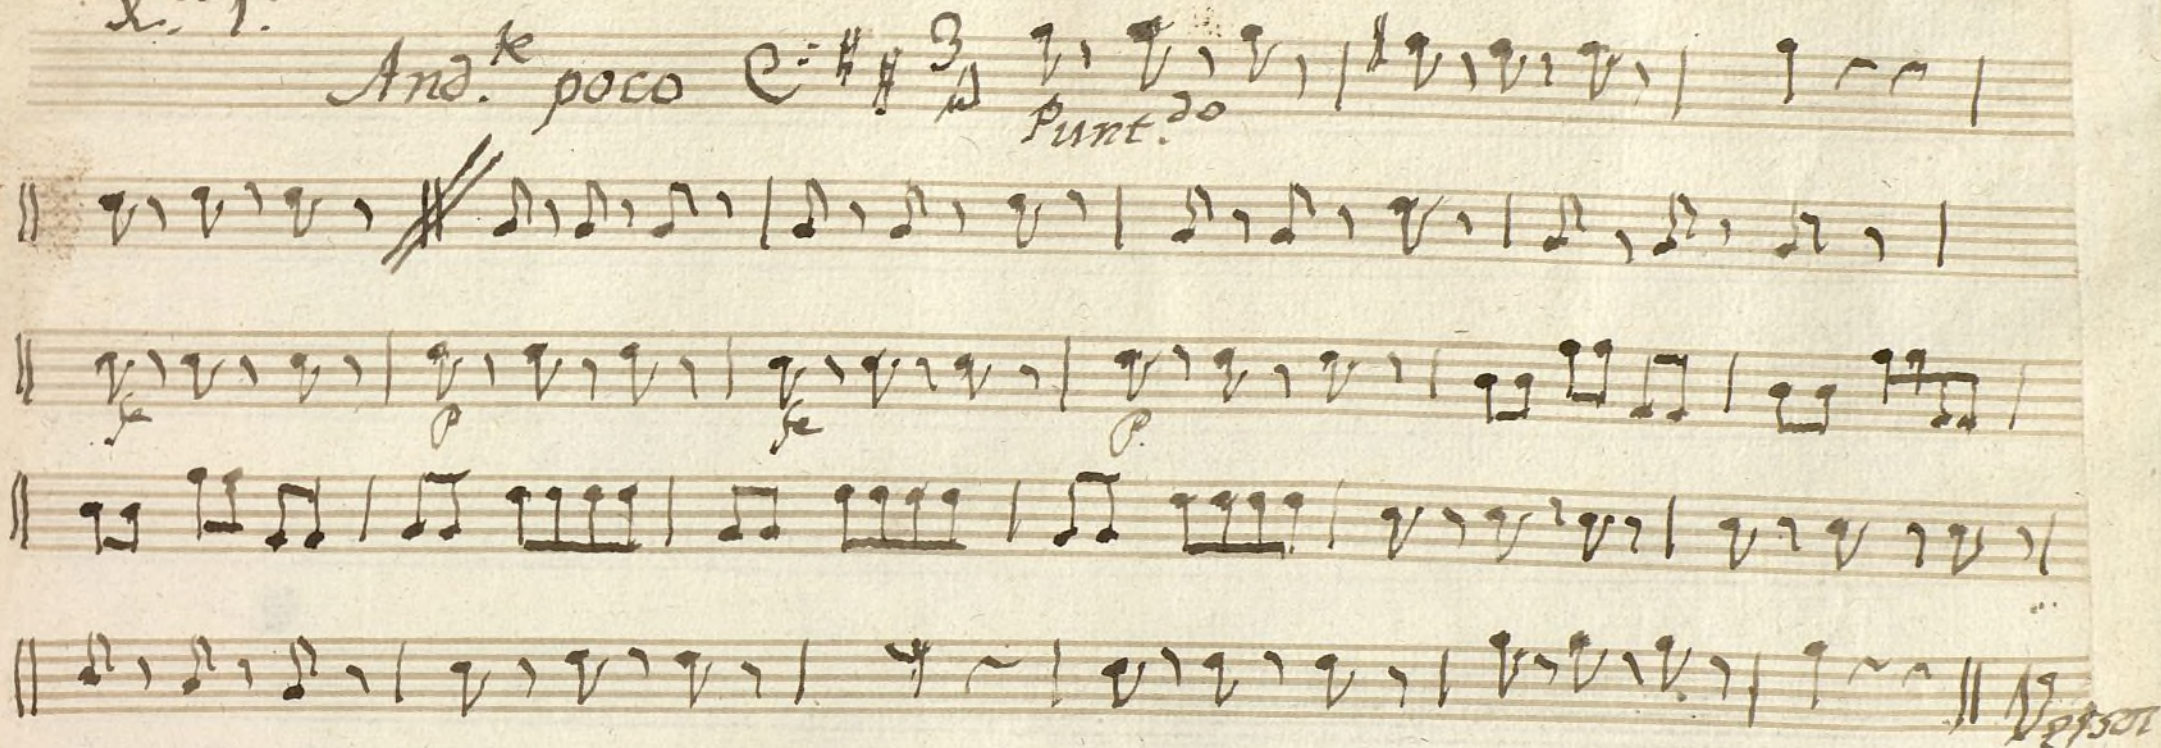 And.te poco 3
Punt.do
fe p fe p.